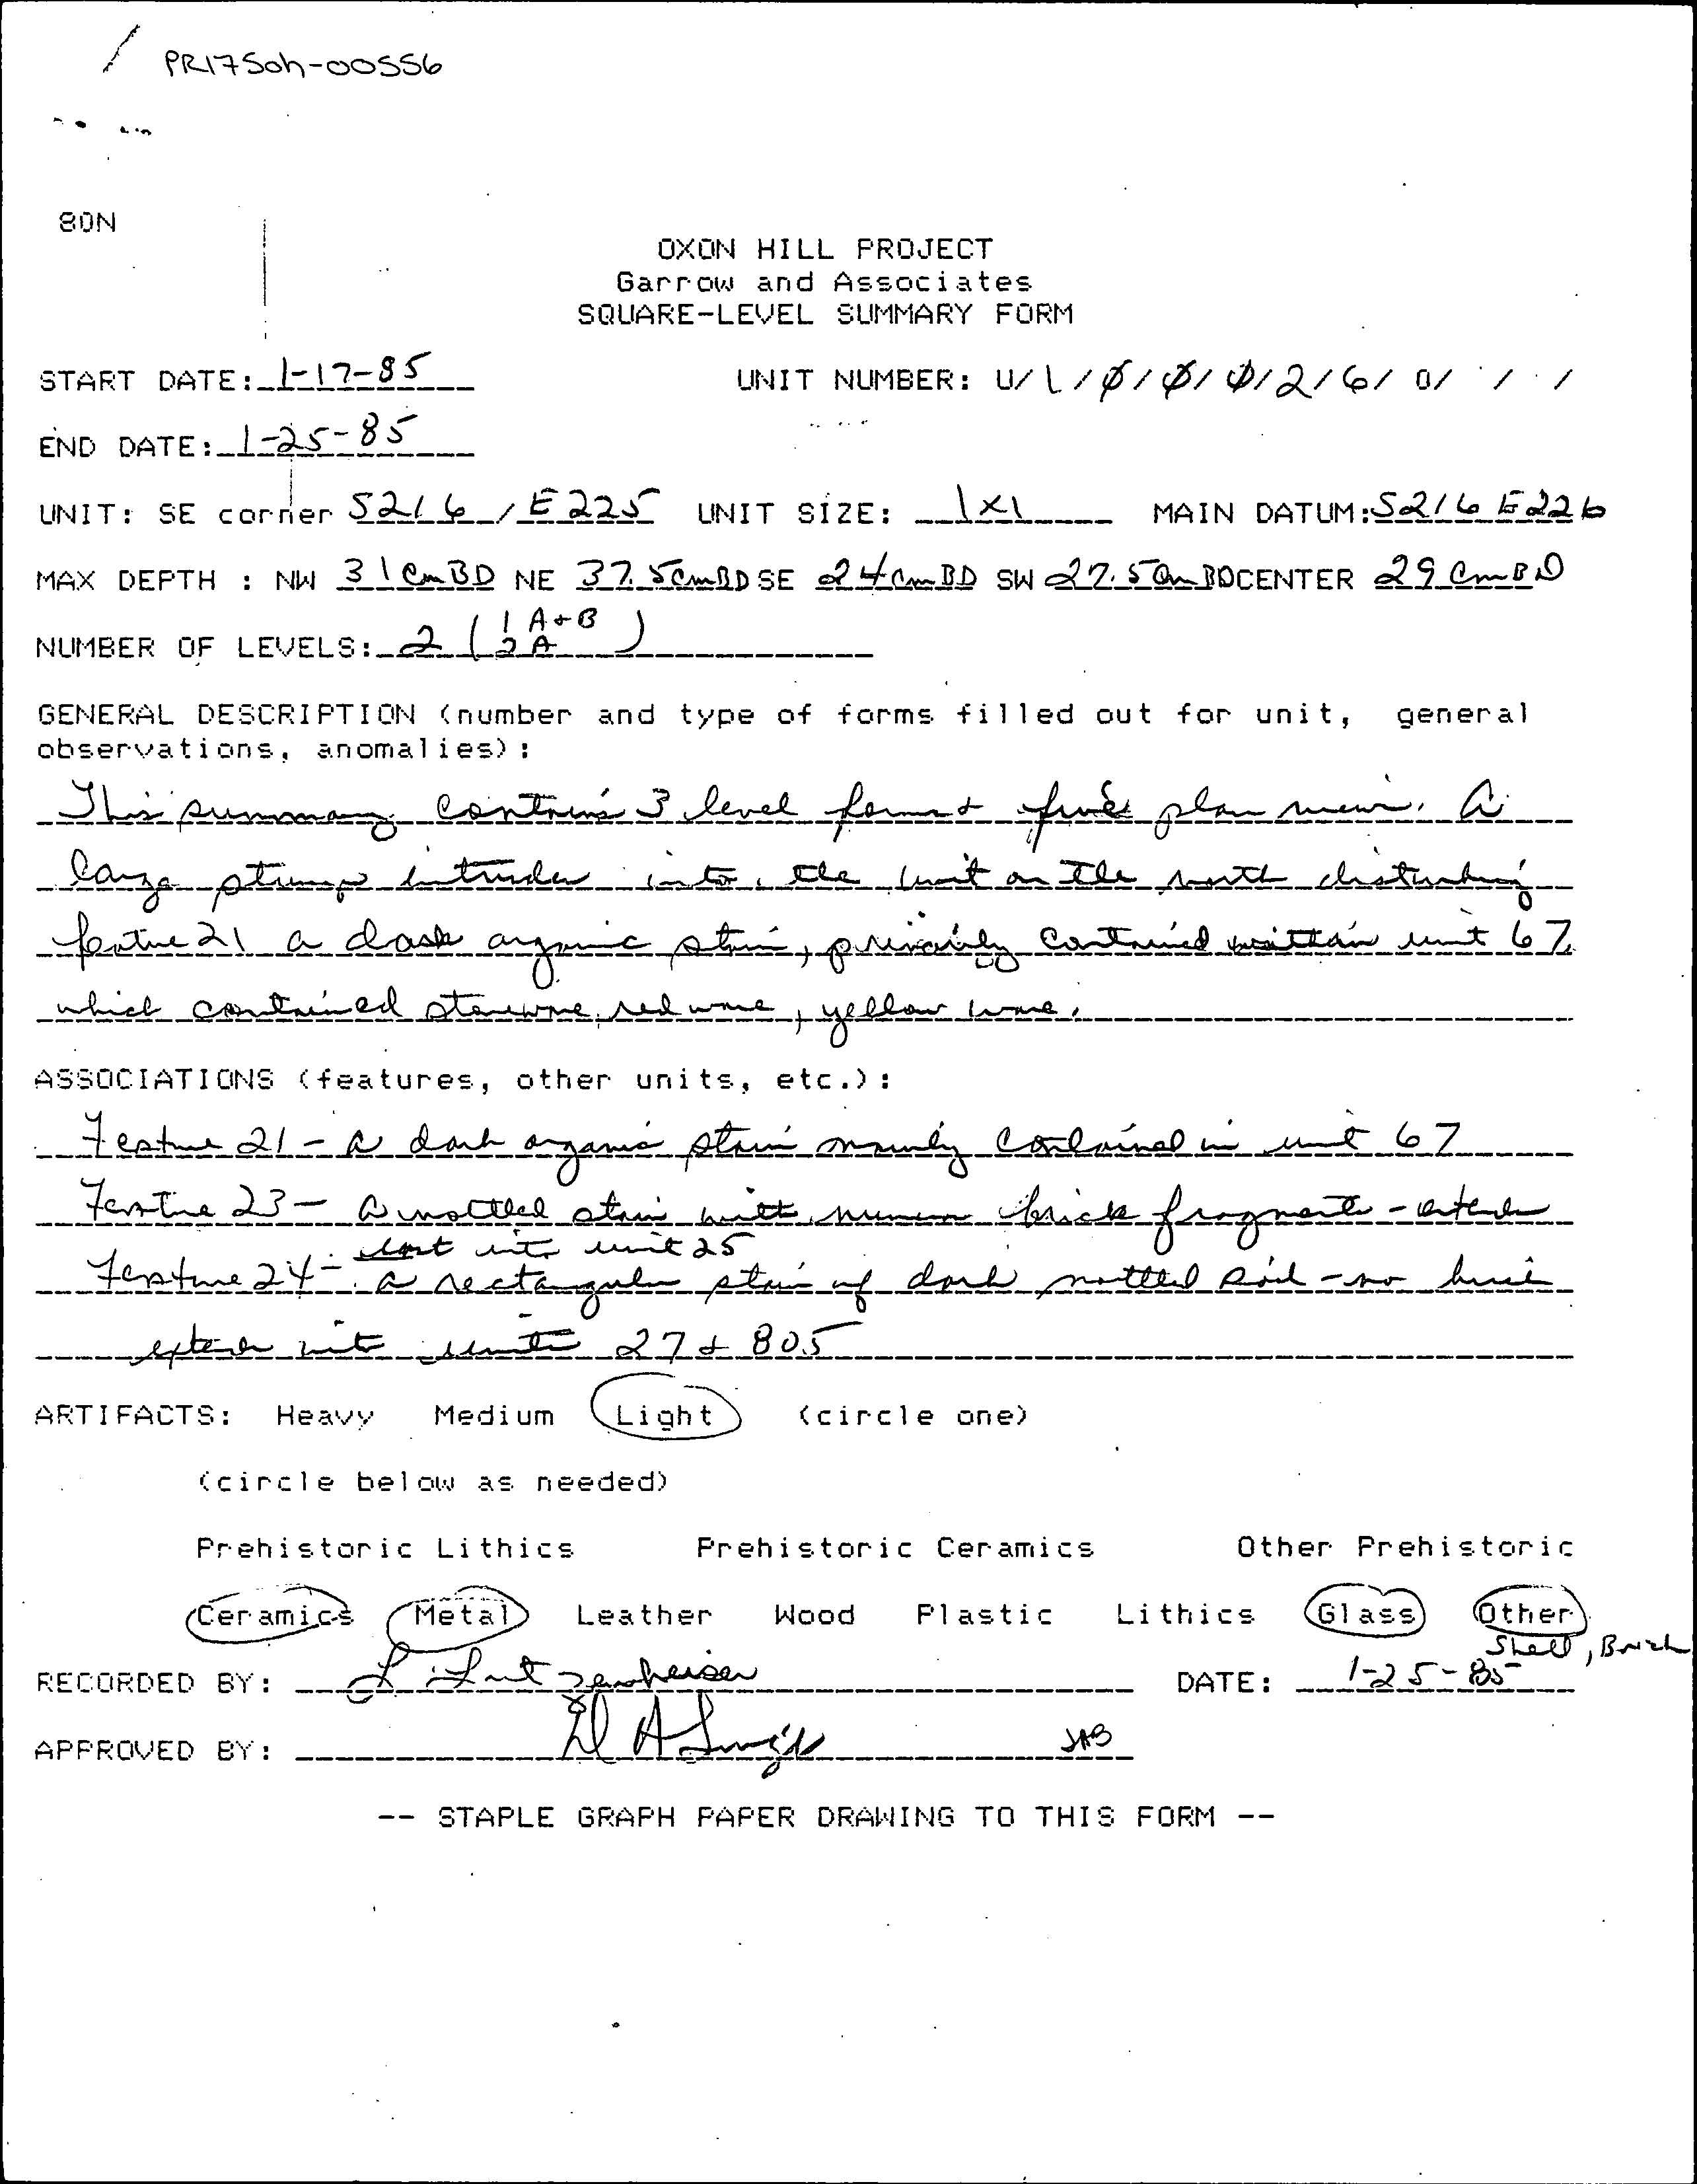 PR175oh-00556
80N
OXON HILL PROJECT
Garrow and Associates
SQUARE-LEVEL SUMMARY FORM
START DATE: 1-17-85 UNIT NUMBER: U/1/Ø/Ø/Ø/2/6/0/ / /
END DATE: 1-25-85
UNIT: SE corner S216/E225 UNIT SIZE: 1x1 MAIN DATUM: S216 E226
MAX DEPTH : NW 31cmBD NE 37.5cmBD SE 24cmBD SW 27.5cmBD CENTER 29cmBD
NUMBER OF LEVELS: 2 (1 A+B
2 A)
GENERAL DESCRIPTION (number and type of forms filled out for unit, general
observations, anomalies):
This summary contains 3 level forms + five plan views. A
large stump intrudes into the unit on the north disturbing
feature 21 a dark organic stain, primarily contained within unit 67,
which contained stoneware, redware, yellow ware.
ASSOCIATIONS (features, other units, etc.):
Feature 21 - a dark organic stain mainly contained in unit 67
Feature 23 - a mottled stain with brick fragments - extends
east into unit 25
Feature 24 - a rectangular stain of dark mottled soil - no brick
extends into units 27 + 805
ARTIFACTS: Heavy Medium Light (circle one)
(circle below as needed)
Prehistoric Lithics Prehistoric Ceramics Other Prehistoric
Ceramics Metal Leather Wood Plastic Lithics Glass Other
Shell, Brick
RECORDED BY: L. Lutzenheiser DATE: 1-25-85
APPROVED BY: JAB
-- STAPLE GRAPH PAPER DRAWING TO THIS FORM --